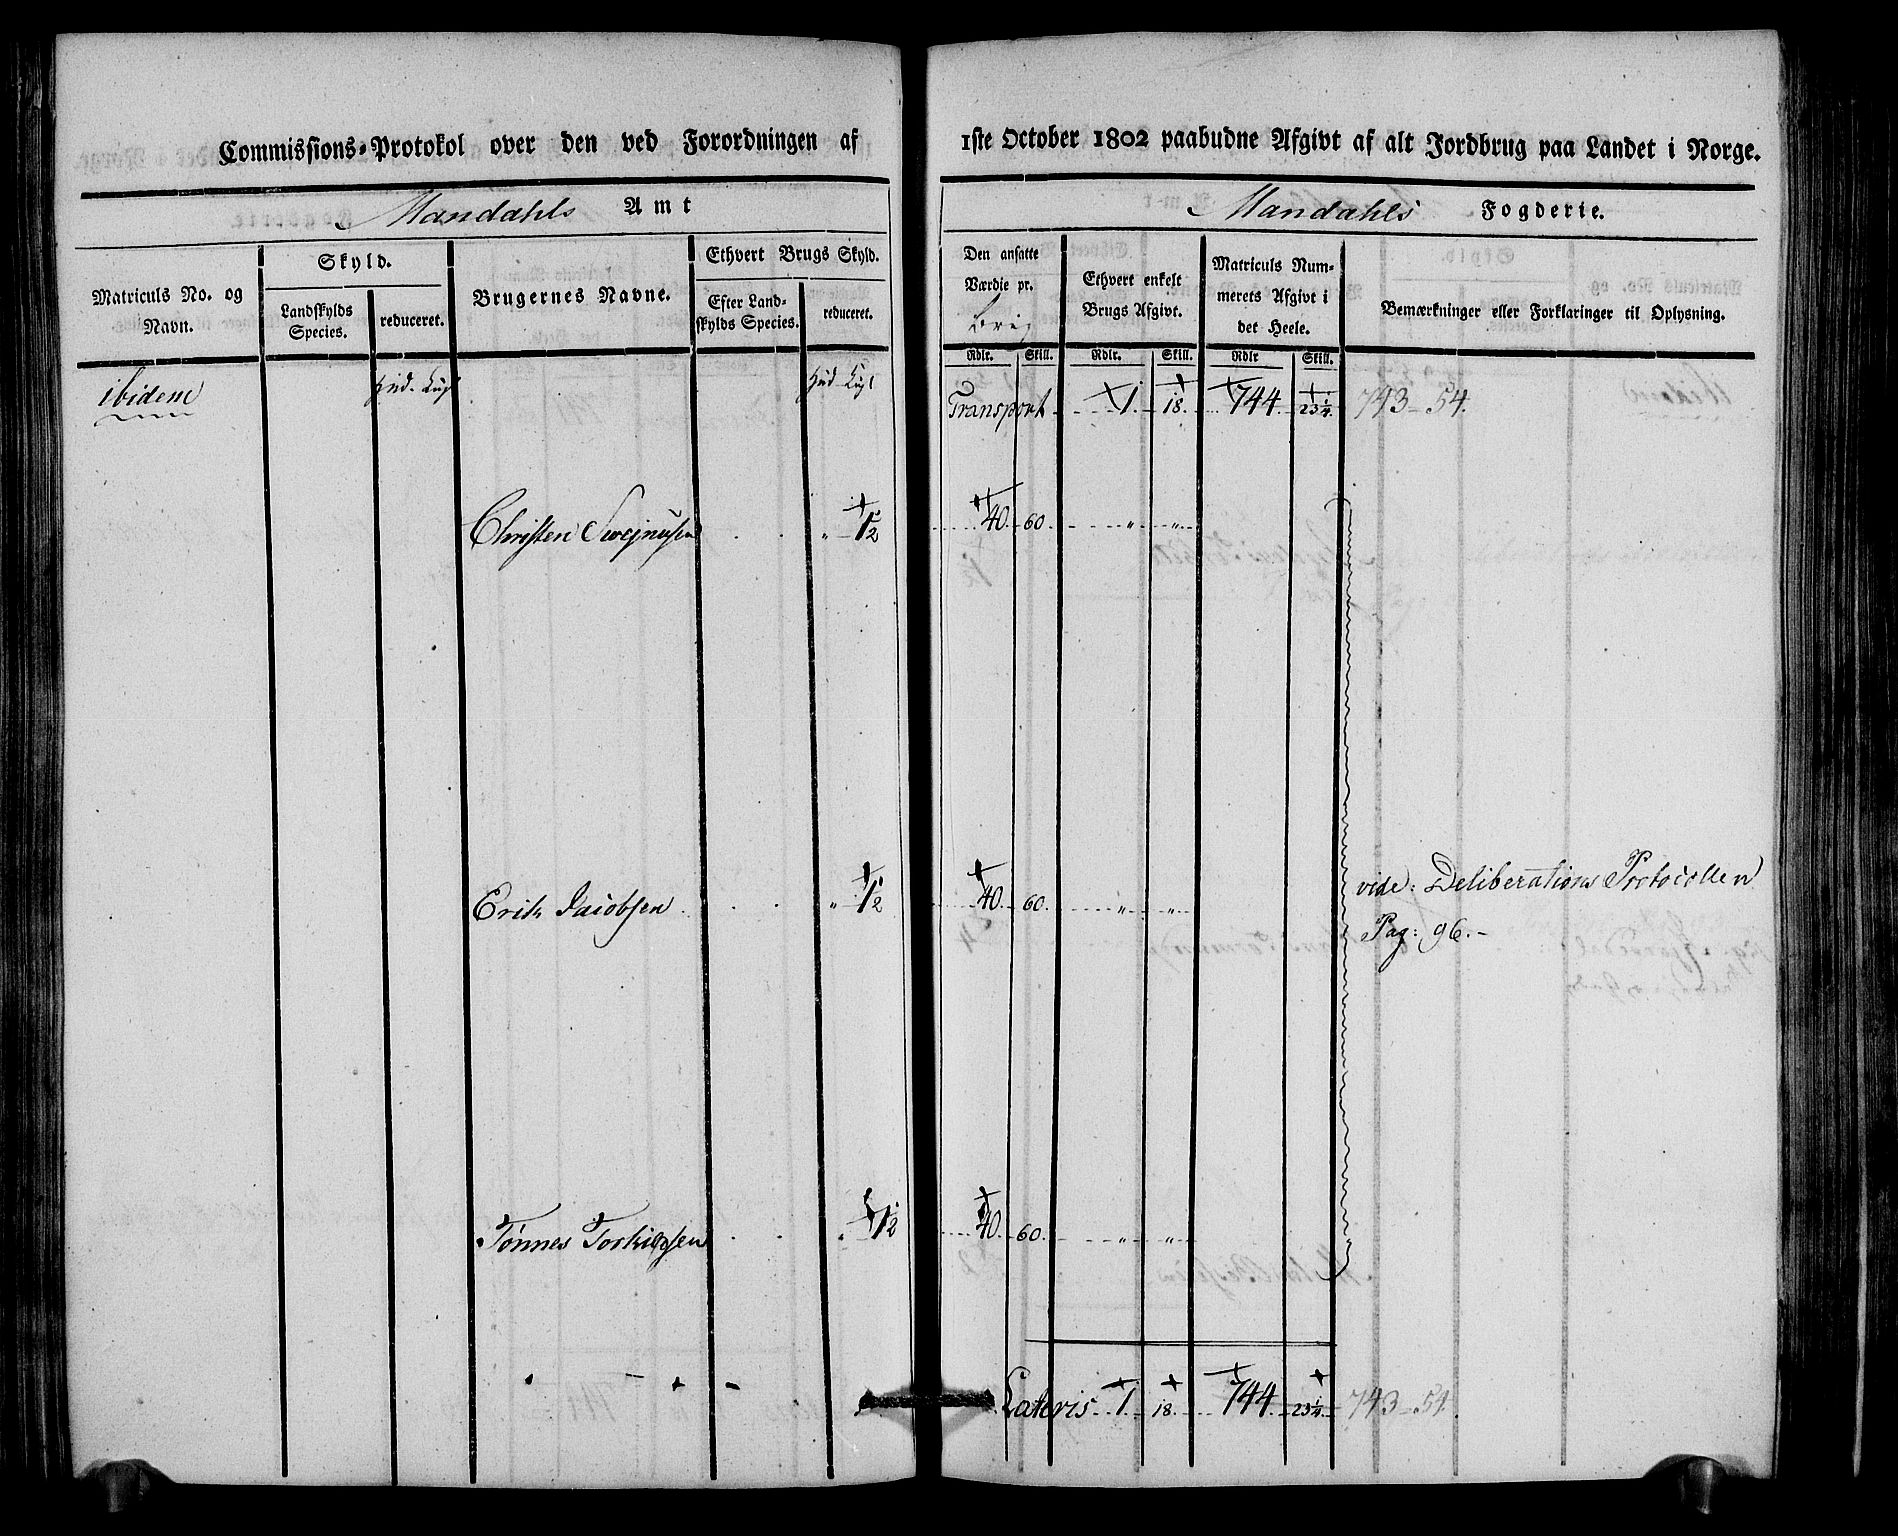 Commissions-Protokol over den ved Forordningen af 1ste October 1802 paabudne Afgivt af alt Jordbrug paa Landet i Norge.
Mandahls Amt
Mandahls Fogderie.
Matriculs No. og Navn.
Skyld.
Landskylds Species.
reduceret.
Brugernes Navne.
Ethvert Brugs Skyld.
Efter Landskylds Species.
reduceret.
Den ansatte Værdie pr.
Rdlr. Skill.
Ethvert enkelt Brugs Afgivt.
Rdlr. Skill.
Matriculs Nummerets Afgivt i det Heele.
Rdlr Skill.
Bemærkninger eller Forklaringer til Oplysning.
ibidem
Transport 1. 18. 744. 23 1/4. 743-54.
Christen Swejnusen " 1/2 40. 60 " "
Erik Jacobsen " 1/2 40. 60. " "
vide: Deliberations Protocollen
Pag: 96.-
Tønnes Torkiesen " 1/2 40. 60. " "
Lateris 1 18. 744. 23 1/4. 743-54.